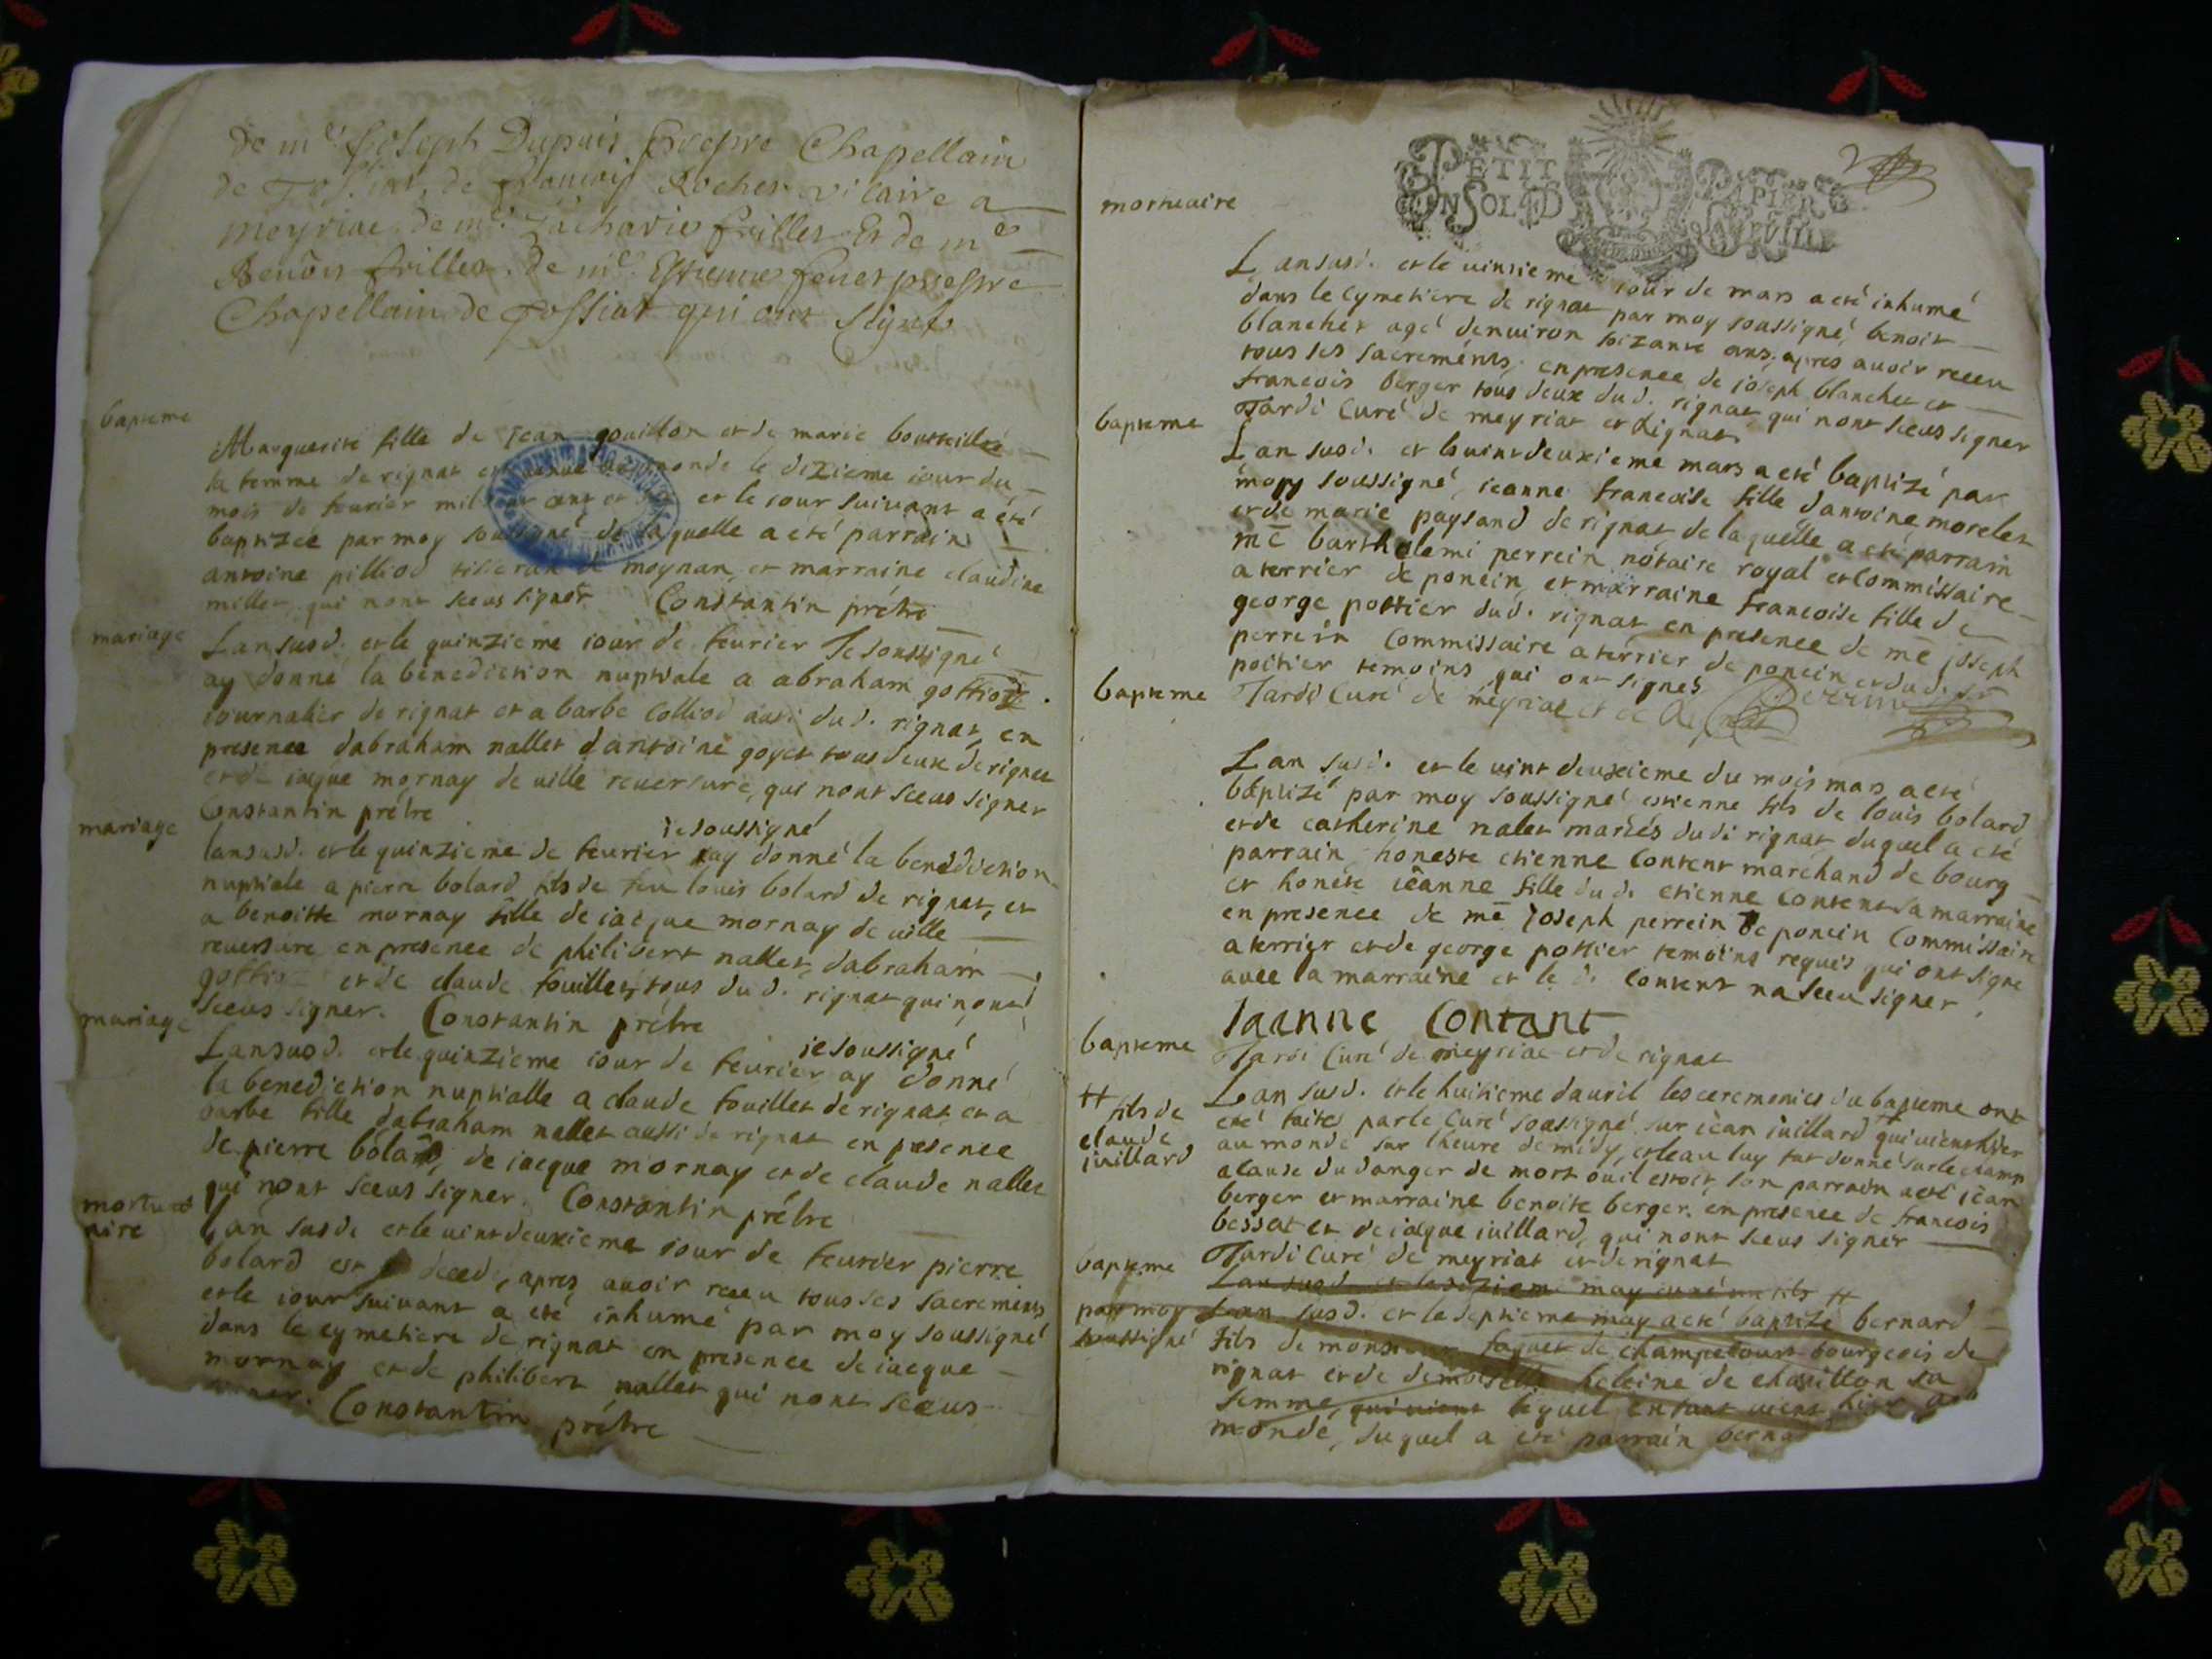 de mre Joseph Dupuis prespre Chapellain
de Jossiat, de françois Rocher vicaire a
meyriac de mre Zacharie frilles Et de mre
Benoist frilles de mre Estienne feuet prespre
Chapellain de Jossiat qui ont signés
bapteme
Marguerite fille de jean gouillon et de marie bouteille
la femme de rignat est venue au monde le dizieme iour du
mois de feurier mil cent et et le iour suivant a été
baptizée par moy soussigné de laquelle a été parrain
antoine pilliod tisseran de moynan, et marraine claudine
millet qui nont sceus signer Constantin prétre
mariage
Lan susd. et le quinzieme iour de feurier Je soussigné
ay donné la benediction nuptiale a abraham gottioz
iournalier de rignat et a barbe Colliod aussi dud. rignat, en
presence dabraham nallet dantoine goyet tous deux de rignat
et de iacque mornay de ville reuersure, qui nont sceus signer
Constantin prétre
mariage
ie soussigné
lan susd. et le quinzieme de feurier ay donné la benediction
nuptiale a pierre bolard fils de feu louis bolard de rignat, et
a benoitte mornay fille de iacque mornay de ville
reuersure en presence de philibert nallet, dabraham
gottioz et de claude fouillet, tous dud. rignat qui nont
sceus signer. Constantin prétre
mariage
ie soussigné
Lan susd. et le quinzieme iour de feurier ay donné
la benediction nuptialle a claude fouillet de rignat et a
barbe fille dabraham nallet aussi de rignat en presence
de pierre bolard, de iacque mornay et de claude nallet
qui nont sceus signer. Constantin prétre
mortu
aire
Lan susdi et le uint deuxieme iour de feurier pierre
bolard est deced, apres auoir receu tous ses sacremens
et le iour suivant a eté inhumé par moy soussigné
dans le cymetiere de rignat en presence de iacque
mornay et de philibert nallet qui nont sceus
signer. Constantin prétre
PETIT PAPIER
UN SOL 
mortuaire
Lan susd. et le uintieme iour de mars a eté inhumé
dans le cymetiere de rignat par moy soussigné benoit
blanchet agé denuiron soizante ans, apres auoir receu
tous ses sacremens, en presence de joseph blanchet et
francois berger tous deux dud. rignat, qui nont sceus signer
Tardi Curé de meyriat et Rignat
bapteme
Lan susd. et le uint deuxieme mars a eté baptizé par
moy soussigné, ieanne francoise fille dantoine morelet
et de marie paysand de rignat de laquelle a eté parrain
me barthelemi perrein notaire royal et Commissaire
a terrier de poncin, et marraine francoise fille de
george pottier dud. rignat en presence de me joseph
perrein Commissaire a terrier de poncin et dud. sr
poitier temoins qui ont signes
Tardi Curé de meyriac et de Rignat Perrin
bapteme
Lan susd. et le uint deuxieme du mois mars a eté
baptizé par moy soussigné estienne fils de louis bolard
et de catherine nalet mariés dudi rignat duquel a eté
parrain honeste etienne Content marchand de bourg
et honéte ieanne fille dudi etienne Content sa marraine
en presence de me Joseph perrein de poncin Commissaire
a terrier et de george pottier temoins requis qui ont signe
auec la marraine et le d. Content na sceu signer
Jeanne Contant
Tardi Curé de meyriac et de rignat
bapteme
Lan susd. et le huitieme dauril les ceremonies du bapteme ont
eté faites par le Curé soussigné sur iean iuillard qui uient hier
# fils de
claude
iuillard
au monde sur lheure de midy, et leau luy fut donné sur le champ
a cause du danger de mort ou il estoit, son parrain a eté iean
berger et marraine benoite berger. en presence de francois
bessat et de iacque iuillard, qui nont sceus signer
Tardi Curé de meyriat et de rignat
bapteme
Lan susd. et le sizieme may un fils #
par moy
soussigné
Lan susd. et le septieme may a eté baptizé bernard
fils de monsieur faguet de champetour bourgeois de
rignat et de demoiselle heleine de chatillon sa
femme, qui uient lequel enfant uient hier au
monde, duquel a eté parrain